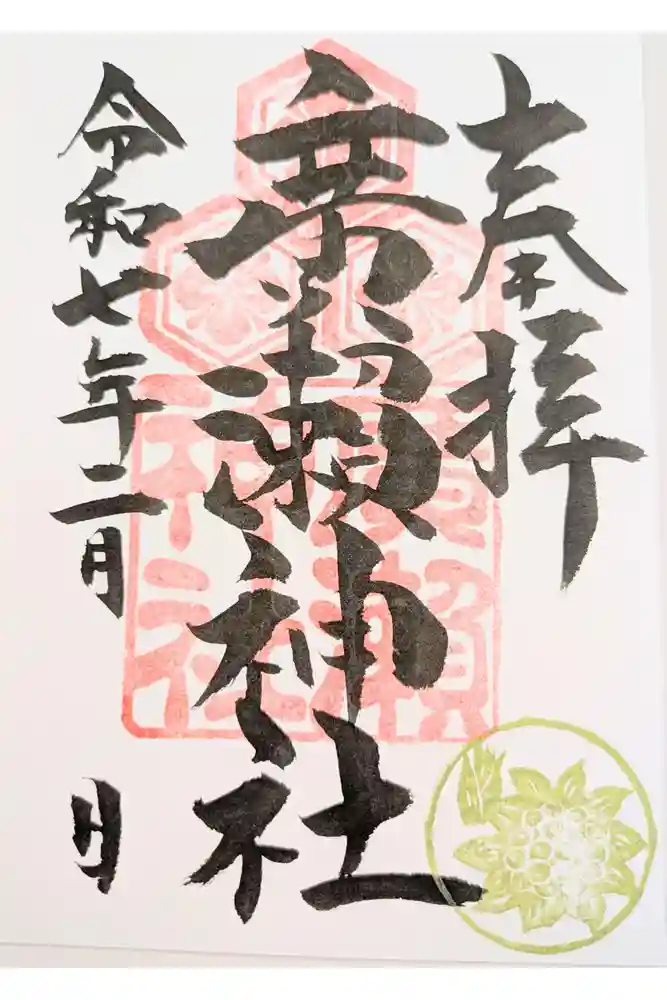 奉拝
廣瀬神社
令和七年二月　日
廣瀬
神社